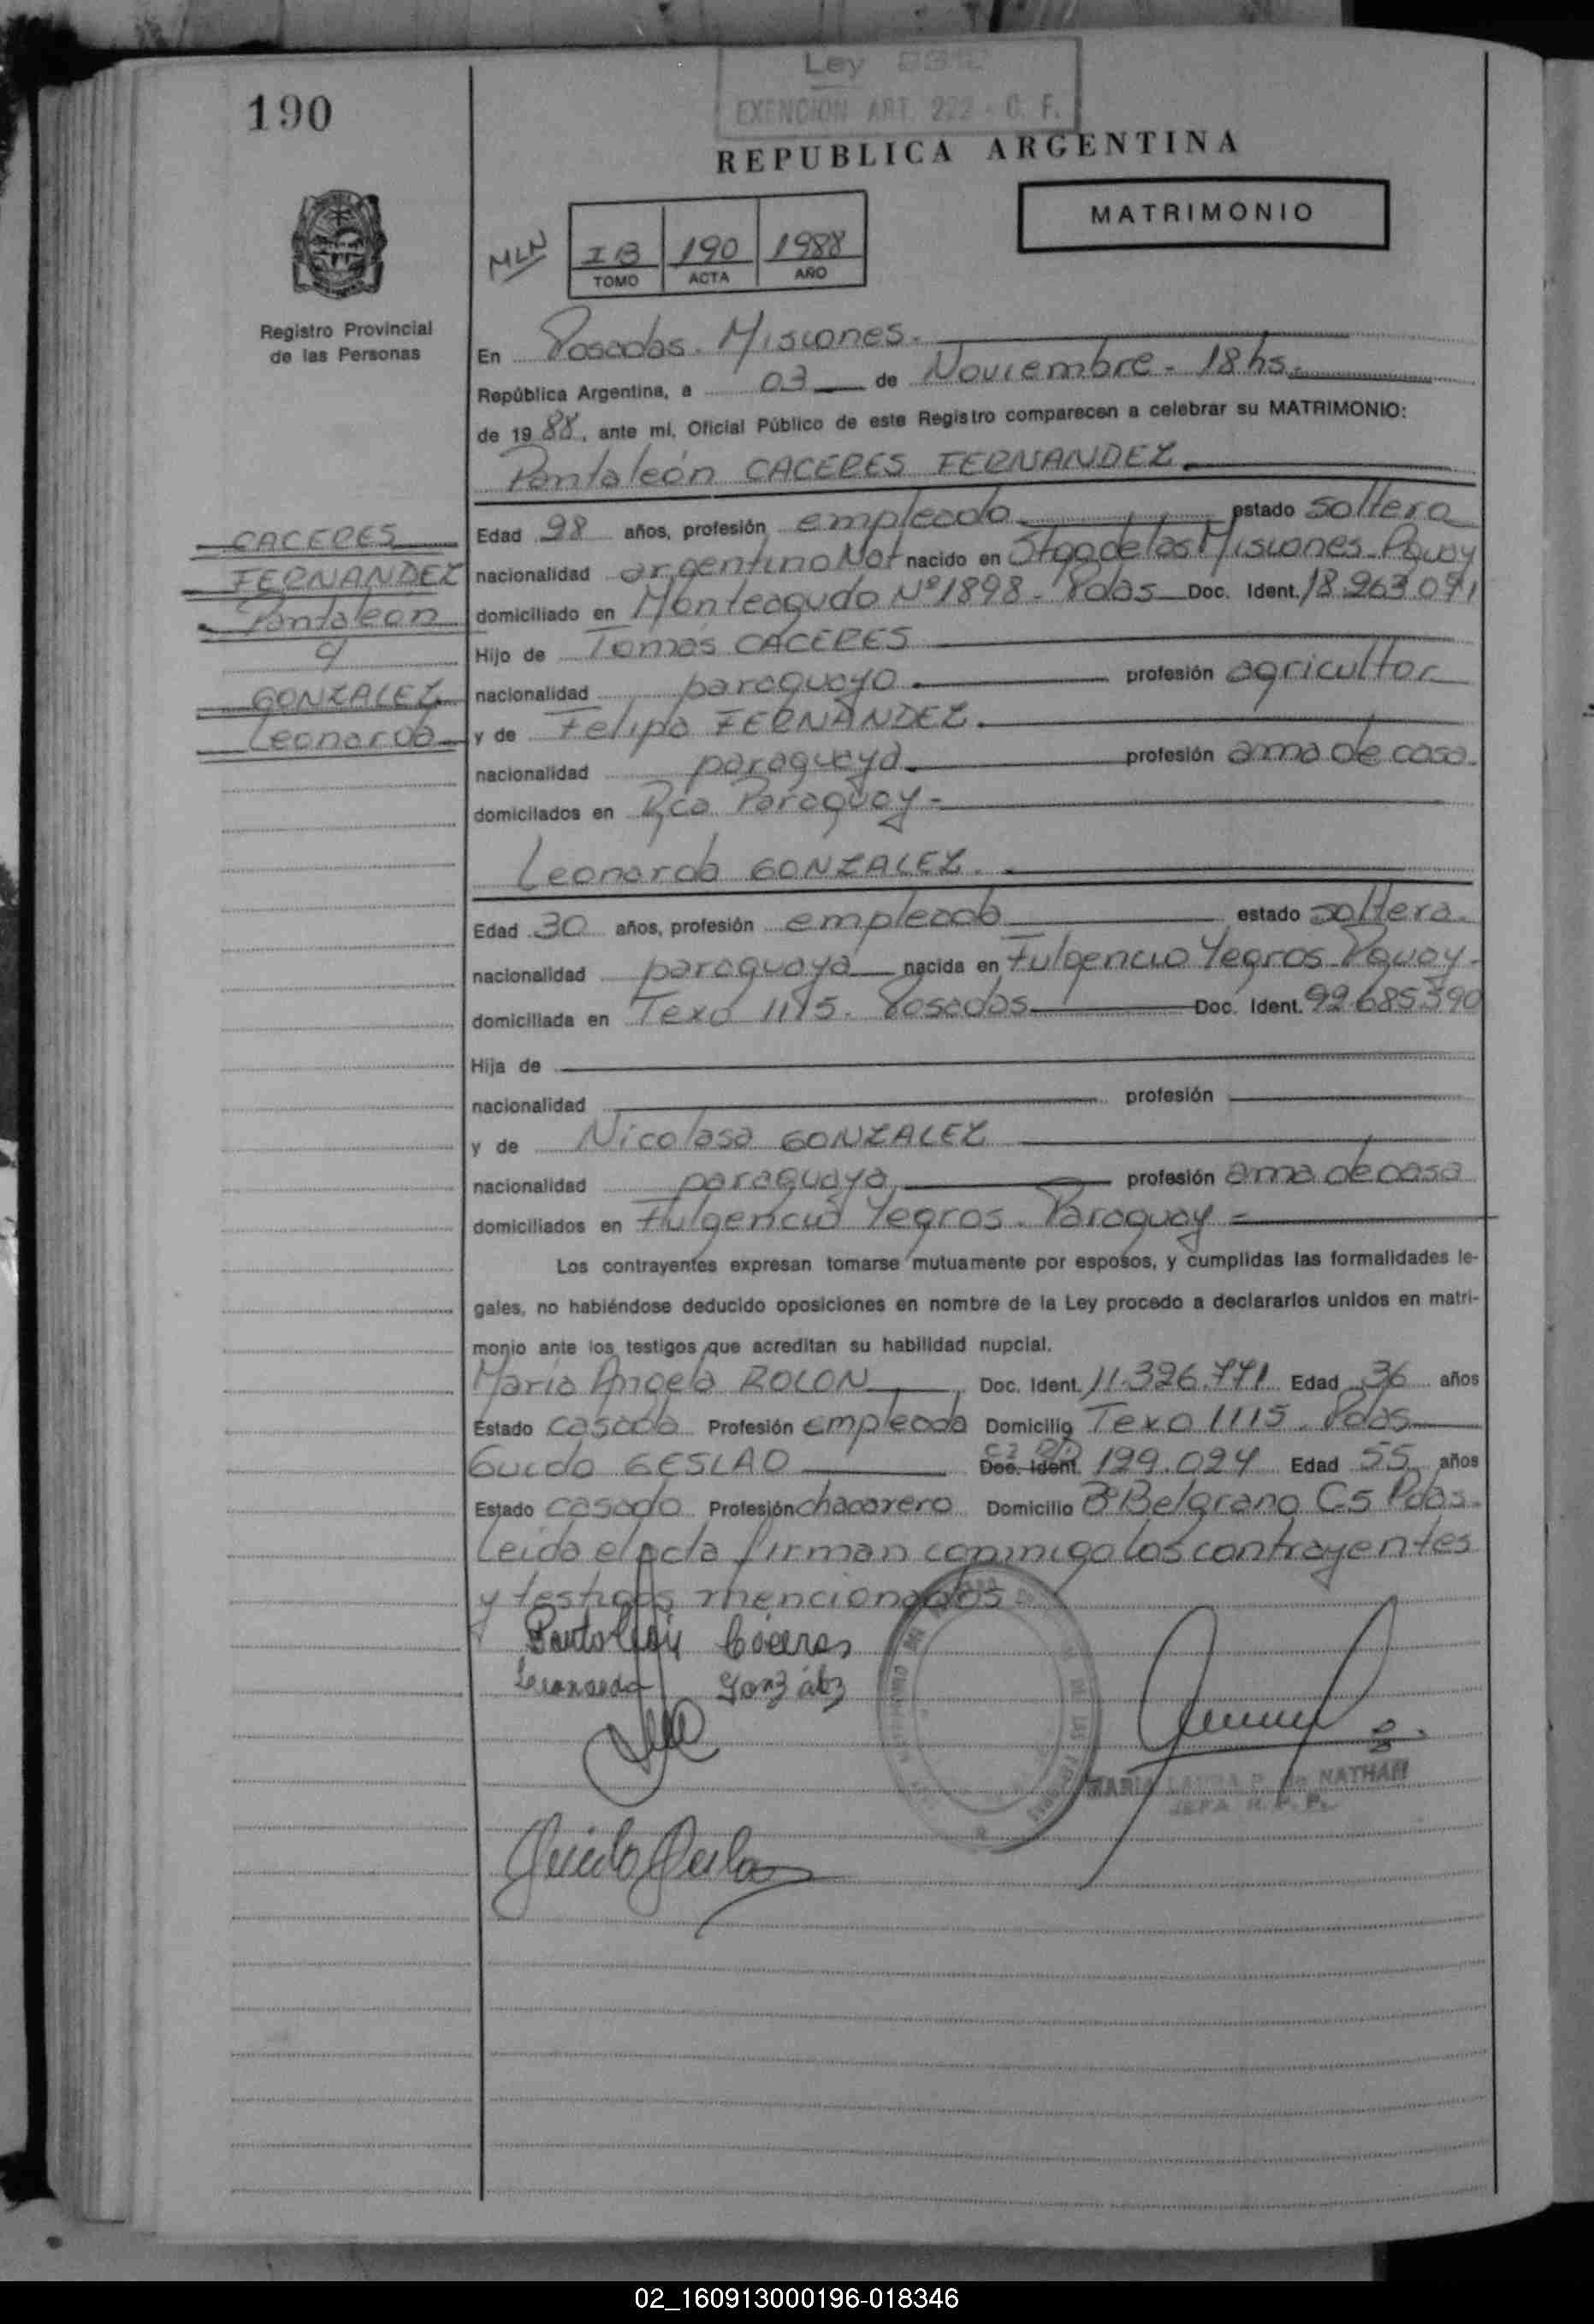 Ley
EXENCION ART. 222 - C. F.
190
REPUBLICA ARGENTINA
MATRIMONIO
MLN
IB 190 1988
TOMO ACTA AÑO
Registro Provincial
de las Personas
En Posadas. Misiones.
República Argentina, a 03 de Noviembre - 18 hs.
de 1988, ante mi, Oficial Público de este Registro comparecen a celebrar su MATRIMONIO:
Pantaleón CACERES FERNANDEZ
CACERES
FERNANDEZ
Pantaleon
GONZALEZ
Leonarda
Edad 98 años, profesión empleado estado soltero
nacionalidad argentino Nat nacido en Stgo de las Misiones - Pguay
domiciliado en Monteagudo Nº 1898 - Pdas Doc. Ident. 18.963.091
Hijo de Tomas CACERES
nacionalidad paraguayo profesión agricultor
y de Felipa FERNANDEZ.
nacionalidad paraguaya profesión ama de casa
domicilados en Rca Paraguay -
Leonarda GONZALEZ.
Edad 30 años, profesión empleada estado soltera.
nacionalidad paraguaya nacida en Fulgencio Yegros Pguay.
domiciliada en Texo 1115. Posadas Doc. Ident. 92.685.390
Hija de
nacionalidad profesión
y de Nicolasa GONZALEZ
nacionalidad paraguaya profesión ama de casa
domiciliados en Fulgencio Yegros. Paraguay -
Los contrayentes expresan tomarse mutuamente por esposos, y cumplidas las formalidades le-
gales, no habiéndose deducido oposiciones en nombre de la Ley procedo a declararlos unidos en matri-
monio ante los testigos que acreditan su habilidad nupcial.
Maria Angela ROLON Doc. Ident. 11.326.771 Edad 36 años
Estado casada Profesión empleada Domicilio Texo 1115. Pdas
Guido GESLAO Doc. Ident. 199.024 Edad 55 años
Estado casado Profesión chacarero Domicilio Bº Belgrano C5 Pdas.
Leida el acta firman conmigo los contrayentes
y testigos mencionados
Pantaleón Cáceres
Leonarda González
MARIA LAURA P. de NATHAN
JEFA R. P. P.
02_160913000196-018346